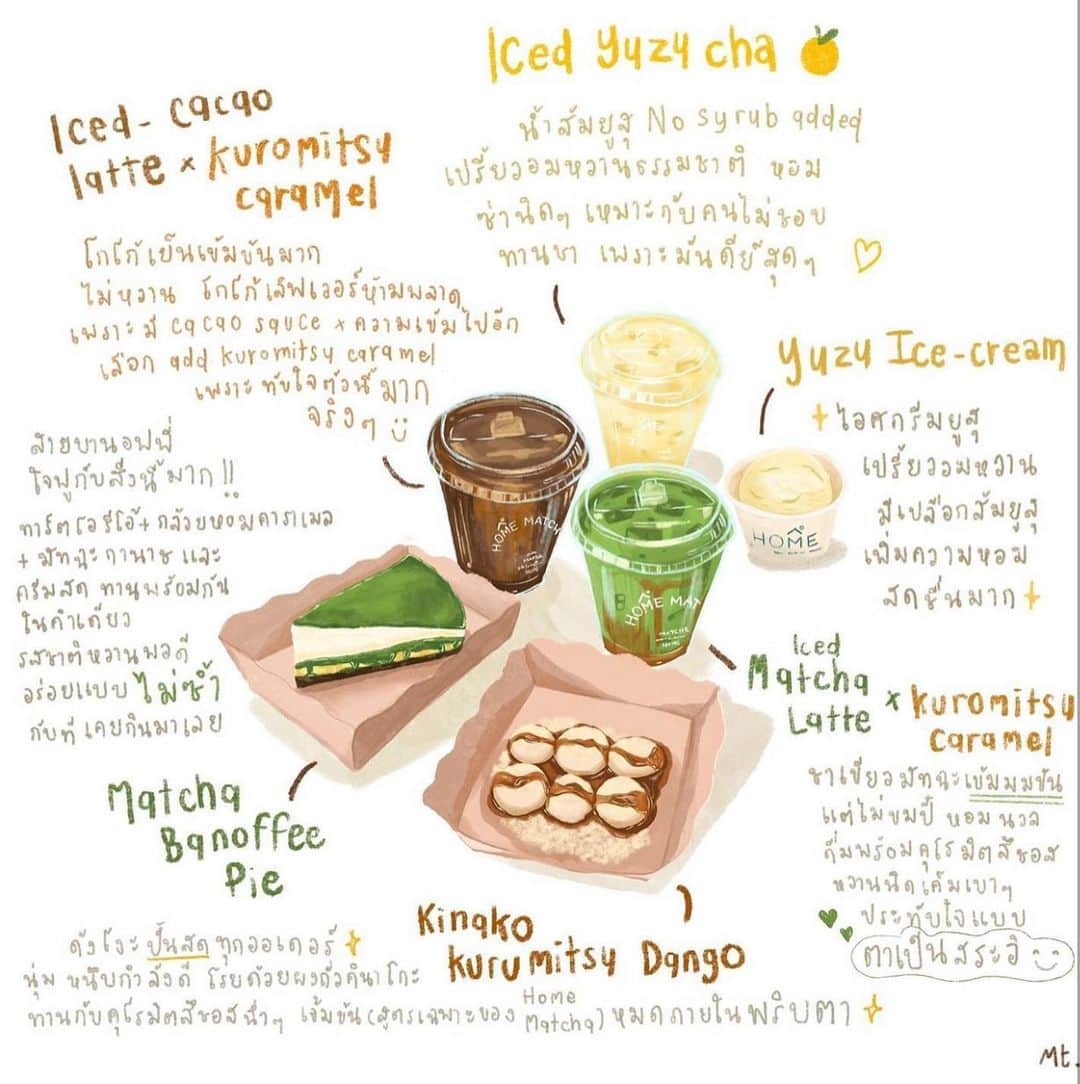 Iced Yuzu cha
น้ำส้มยูสุ No syrub added
เปรี้ยวอมหวานธรรมชาติ หอม
ซ่านิดๆ เหมาะกับคนไม่ชอบ
ทานชา เพราะมันดีย์สุดๆ
Iced - Cacao
latte × kuromitsu
caramel
โกโก้เย็นเข้มข้นมาก
ไม่หวาน โกโก้เลิฟเวอร์ห้ามพลาด
เพราะมี cacao sauce × ความเข้มไปอีก
เลือก add kuromitsu caramel
เพราะ ทับใจตัวนี้มาก
จริงๆ
Yuzu Ice-cream
ไอศกรีมยูสุ
เปรี้ยวอมหวาน
มีเปลือกส้มยูสุ
เพิ่มความหอม
สดชื่นมาก
สายบานอฟฟี่
ใจฟูกับสิ่งนี้มาก !!
ทาร์ตโอรีโอ้ + กล้วยหอมคาราเมล
+ มัทฉะกานาช และ
ครีมสด ทานพร้อมกัน
ในคำเดียว
รสชาติหวานพอดี
อร่อยแบบ ไม่ซ้ำ
กับที่เคยกินมาเลย
Matcha
Banoffee
Pie
HOME MATCH
HOME MAT
MATCHA
HOME
Iced
Matcha
Latte × kuromitsu
caramel
ชาเขียวมัทฉะเข้มมมข้น
แต่ไม่ขมปี๋ หอมนวล
ดื่มพร้อมคุโรมิตสึซอส
หวานนิดเค็มเบาๆ
ประทับใจแบบ
ตาเป็นสระอิ
Kinako
kurumitsu Dango
ดังโงะ ปั้นสดทุกออเดอร์
นุ่ม หนึบกำลังดี โรยด้วยผงถั่วคินาโกะ
ทานกับคุโรมิตสึซอสฉ่ำๆ เข้มข้น (สูตรเฉพาะของ Home Matcha) หมดภายในพริบตา
Mt.